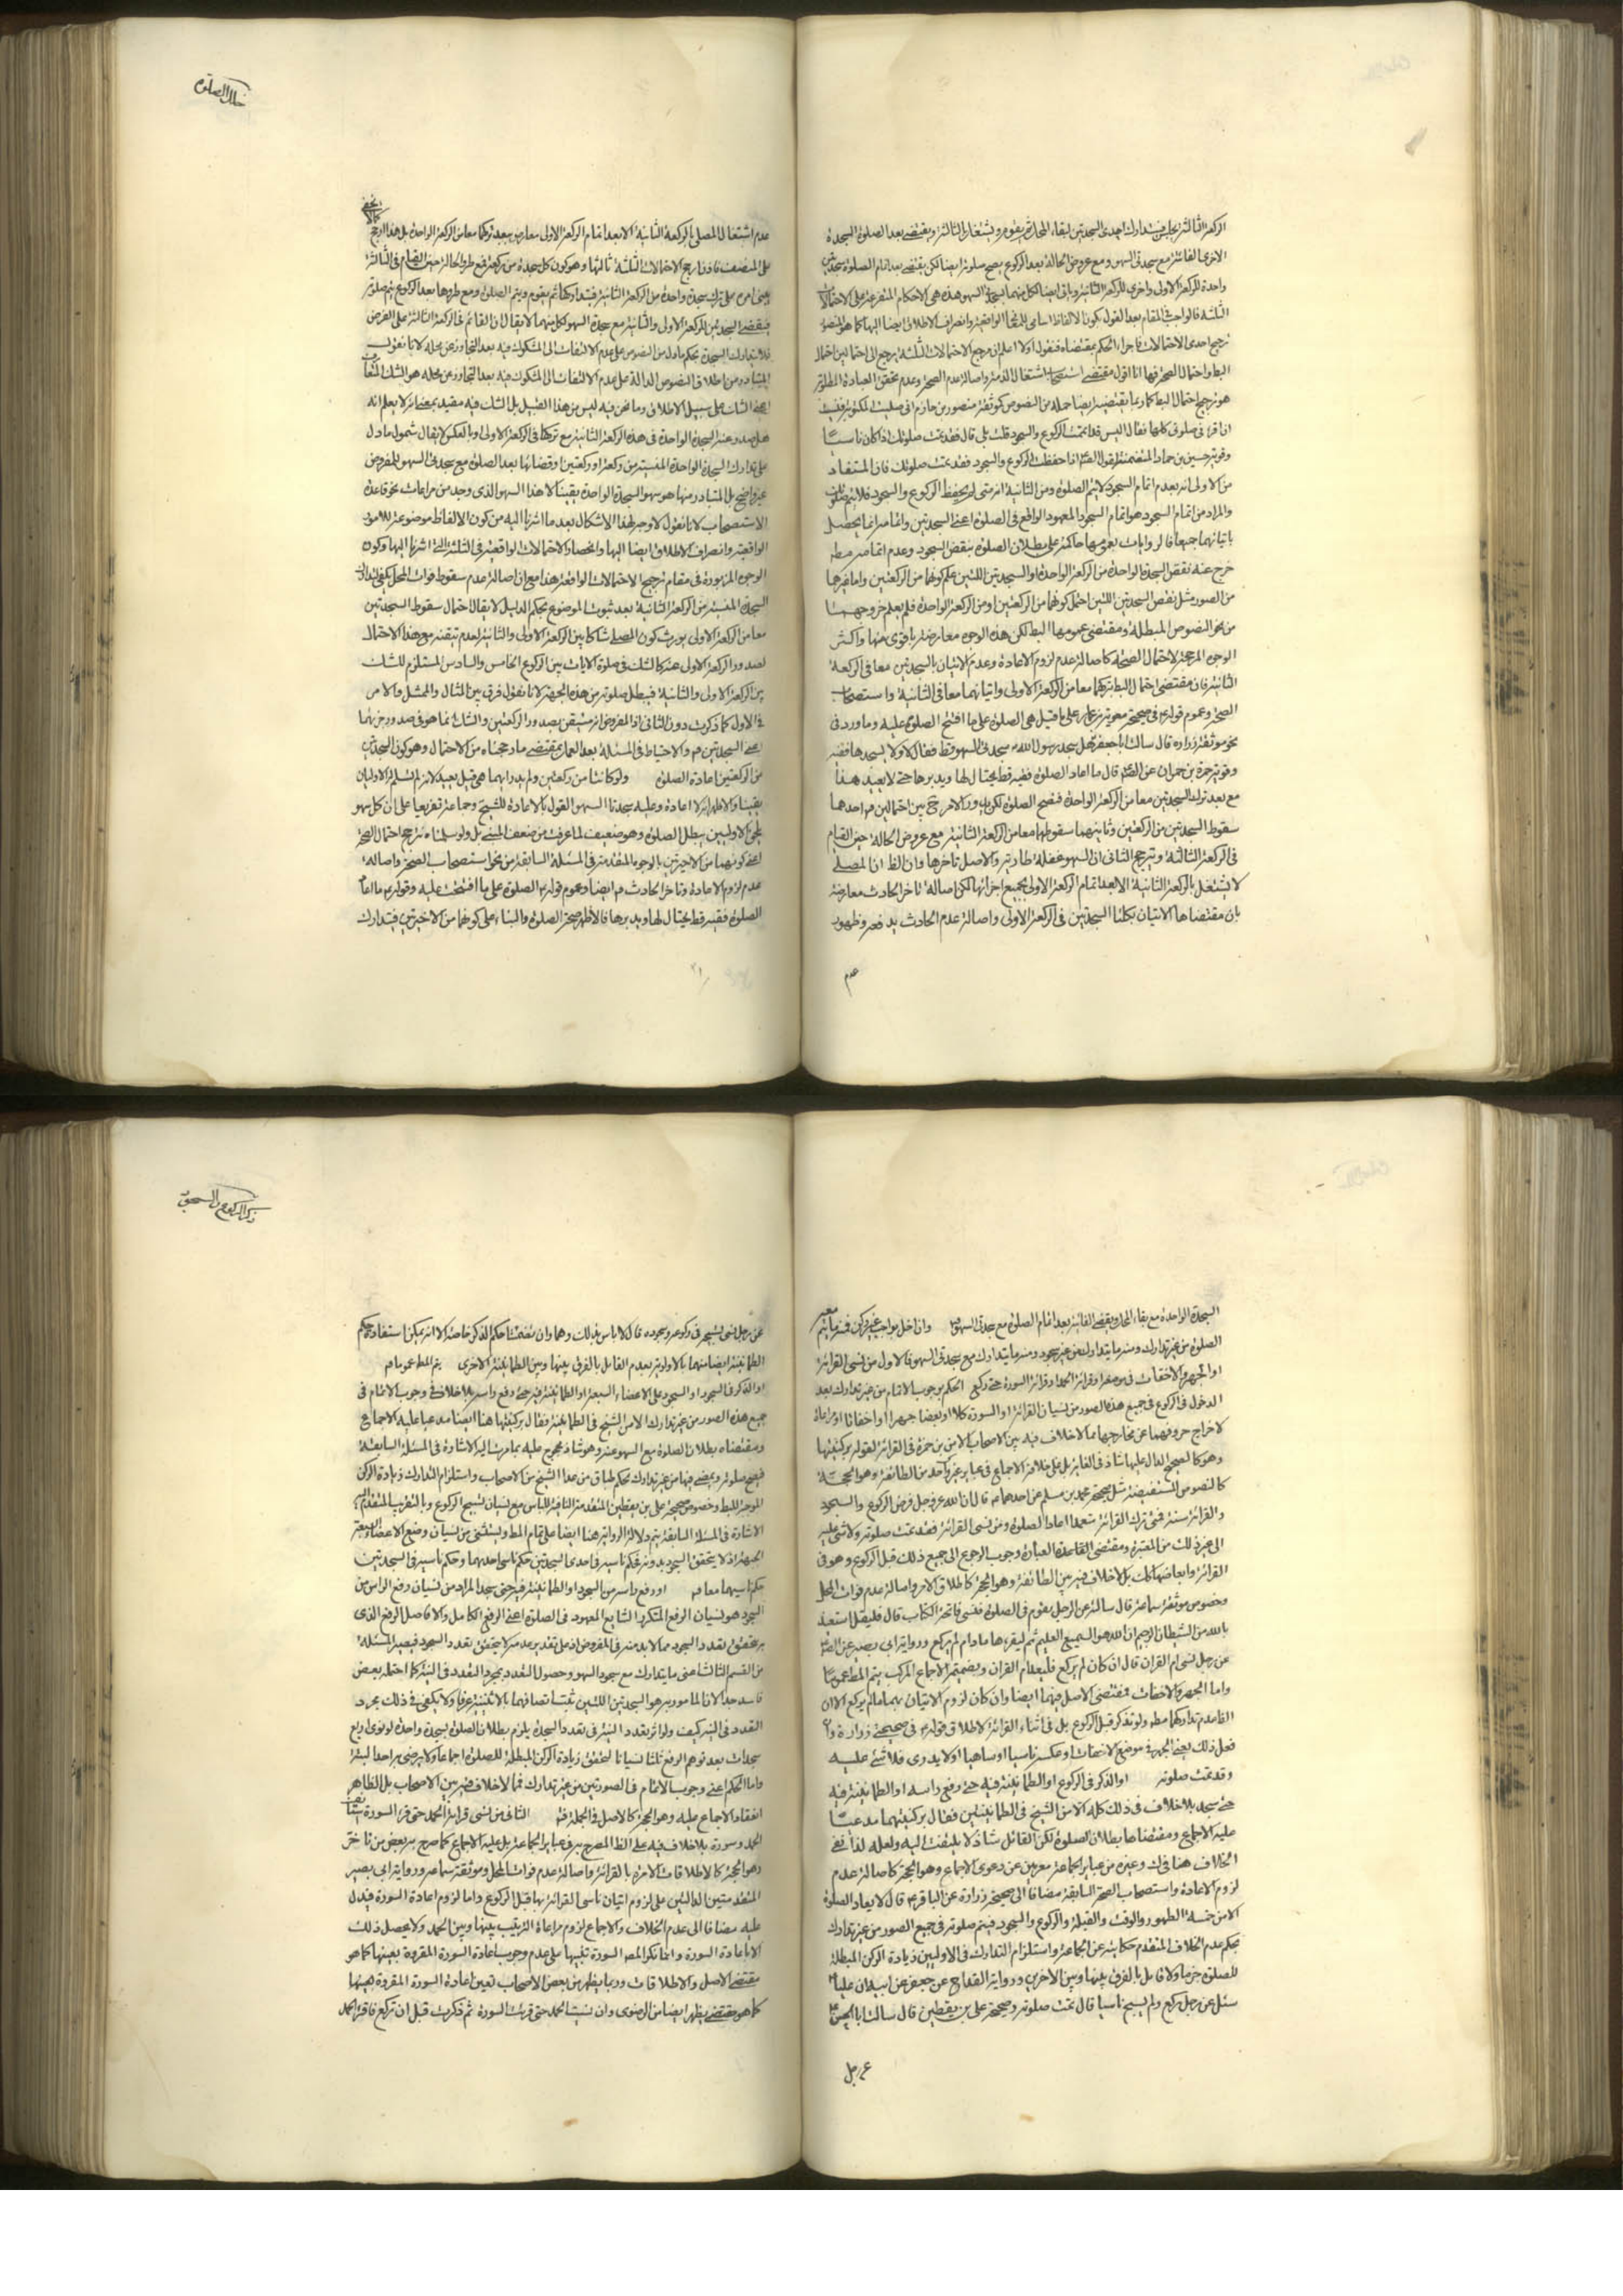 الركعة الثالثة يجلس فيتدارك احدى السجدتين لبقاء المحل ثم يقوم ويشتغل بالثالثة ويقضى بعد الصلوة السجدة
الاخرى الفائتة مع سجدتى السهو ومع عروض الحالة بعد الركوع يصح صلوته ايضا لكن يقضى بعد اتمام الصلوة سجدتين
واحدة للركعة الاولى واخرى للركعة الثانية وياتى ايضا لكل منهما بسجدتى السهو هذه هى الاحكام المتفرعة على الاحتمالات
الثلثة فالواجب فى المقام بعد القول بكون الالفاظ اسامى للمعانى الواقعية وانصراف الاطلاق ايضا اليها كما هو المنصور
ترجيح احدى الاحتمالات فاجراء الحكم بمقتضاه فنقول اولا اعلم ان مرجع الاحتمالات الثلثة يرجع الى احتمالين احتمال
البطلان واحتمال الصحة فها انا اقول مقتضى استصحاب اشتغال الذمة واصالة عدم الصحة وعدم تحقق العبادة المطلوبة
هو ترجيح احتمال البط كما ربما يقتضيه ايضا جملة من النصوص كموثقة منصور بن حازم انى صليت المكتوبة فنسيت
ان اقرء فى صلوتى كلها فقال اليس قد اتممت الركوع والسجود قلت بلى قال فقد تمت صلوتك اذا كان ناسيا
وقوية حسين بن حماد المتضمنة لقول الصادق اذا حفظت الركوع والسجود فقد تمت صلوتك فان المستفاد
من الاولى انه بعدم اتمام السجود لا يتم الصلوة ومن الثانية انه متى لم يحفظ الركوع والسجود فلا يتم صلوته
والمراد من اتمام السجود هو اتمام السجود المعهود الواقع فى الصلوة اعنى السجدتين واتمامه انما يحصل
باتيانهما جميعا فالروايات بعمومها حاكمة على بطلان الصلوة بنقص السجود وعدم اتمامه مطلقا
خرج عنه نقص السجدة الواحدة من الركعة الواحدة او السجدتين اللتين علم كونهما من الركعتين واما غيرها
من الصور مثل نقص السجدتين اللتين احتمل كونهما من الركعتين او من الركعة الواحدة فلم يعلم خروجهما
من نحو النصوص المبطلة ومقتضى عمومها البط لكن هذه الوجوه معارضة باقوى منها واكثر
الوجوه المرجحة لاحتمال الصحة كاصالة عدم لزوم الاعادة وعدم الاتيان بالسجدتين معا فى الركعة
الثانية فان مقتضى احتمال البط تركهما معا من الركعة الاولى واتيانهما معا فى الثانية واستصحاب
الصحة وعموم قوله فى صحيحة معوية بن عمار على ما قيل هى الصلوة على ما افتتح الصلوة عليه وما ورد فى
نحو موثقة زرارة قال سالت ابا جعفر هل سجد رسول الله سجدتى السهو قط فقال لا ولا يسجدهما فقيه
وقوية حمزة بن حمران عن الصادق قال ما اعاد الصلوة فقيه قط يحتال لها ويدبرها حتى لا يعيد هذا
مع بعد ترك السجدتين معا من الركعة الواحدة فتصح الصلوة لكن يدور الامر ح بين احتمالين ثم احدهما
سقوط السجدتين من الركعتين وثانيهما سقوطهما معا من الركعة الثانية مع عروض الحالة حين القيام
فى الركعة الثالثة وترجيح الثانى ان السهو غفلة طارية والاصل تاخرها وان الظ ان المصلى
لا يشتغل بالركعة الثانية الا بعد اتمام الركعة الاولى بجميع اجزائها لكن اصالة تاخر الحادث معارضة
بان مقتضاها الاتيان بكلتا السجدتين فى الركعة الاولى واصالة عدم الحادث يدفعه وظهور
عدم
خلل الصلوة
عدم اشتغال المصلى بالركعة الثانية الا بعد اتمام الركعة الاولى معارض ببعد تركهما معا من الركعة الواحدة بل هذا ارجح
على المنصف فاذن ارجح الاحتمالات الثلثة ثالثها وهو كون كل سجدة من ركعة فمع طرو الحالة حين القيام فى الثالثة
يبنى امره على ترك سجدة واحدة من الركعة الثانية فيتداركها ثم يقوم ويتم الصلوة ومع طروها بعد الركوع يتم صلوته
فيقضى السجدتين للركعة الاولى والثانية مع سجدة السهو لكل منهما لا يقال ان القائم فى الركعة الثالثة على الفرض
فلا يتدارك السجدة بحكم ما دل من النصوص على عدم الالتفات الى المشكوك فيه بعد التجاوز عن محله لانا نقول
المتبادر من اطلاق النصوص الدالة على عدم الالتفات الى المشكوك فيه بعد التجاوز عن محله هو الشك المتعارف
اعنى الشك على سبيل الاطلاق وما نحن فيه ليس من هذا القبيل بل الشك فيه مقيد بمعنى انه لا يعلم انه
هل صدر عنه السجدة الواحدة فى هذه الركعة الثانية مع تركها فى الركعة الاولى او بالعكس لا يقال شمول ما دل
على تدارك السجدة الواحدة المنسية من ركعة او ركعتين او قضائها بعد الصلوة مع سجدتى السهو للمفروض
غير واضح بل المتبادر منها هو سهو السجدة الواحدة يقينا لا هذا السهو الذى وجد من مراعات نحو قاعدة
الاستصحاب لانا نقول لا وجه لهذا الاشكال بعد ما اشرنا اليه من كون الالفاظ موضوعة للامور
الواقعية وانصراف الاطلاق ايضا اليها وانحصار الاحتمالات الواقعية فى الثلثة التى اشرنا اليها وكون
الوجوه المزبورة فى مقام ترجيح الاحتمالات الواقعة هذا مع ان اصالة عدم سقوط فوات المحل يكفى لتدارك
السجدة المنسية من الركعة الثانية بعد ثبوت الموضوع بحكم الدليل لا يقال احتمال سقوط السجدتين
معا من الركعة الاولى يورث كون المصلى شاكا بين الركعة الاولى والثانية لعدم تيقنه مع هذا الاحتمال
لصدور الركعة الاولى عنه كالشك فى صلوة الايات بين الركوع الخامس والسادس المستلزم للشك
بين الركعة الاولى والثانية فيبطل صلوته من هذه الجهة لانا نقول فرق بين المثال والممثل والامر
فى الاول كما ذكرت دون الثانى اذ المفروض انه متيقن بصدور الركعتين والشك انما هو فى صدور جزئهما
اعنى السجدتين ثم والاحتياط فى المسئلة بعد العمل بمقتضى ما رجحناه من الاحتمال وهو كون السجدتين
من الركعتين اعادة الصلوة ولو كانتا من ركعتين ولم يدر ايهما هى قيل يعيد لانه لم تسلم له الاوليان
يقينا والاظهر انه لا اعادة وعليه سجدتا السهو القول بالاعادة للشيخ وجماعة تفريعا على ان كل سهو
يلحق الاوليين يبطل الصلوة وهو ضعيف لما عرفت من ضعف المبنى بل ولو سلمناه نرجح احتمال الصحة
اعنى كونهما من الاخيرتين بالوجوه المتقدمة فى المسئلة السابقة من نحو استصحاب الصحة واصالة
عدم لزوم الاعادة وتاخر الحادث ثم ايضا وعموم قوله الصلوة على ما افتتحت عليه وقوله ما اعاد
الصلوة فقيه قط يحتال لها ويدبرها فالاظهر صحة الصلوة والبناء على كونهما من الاخيرتين فيتدارك
السجدة الواحدة مع بقاء المحل ويقضى الفائتة بعد اتمام الصلوة مع سجدتى السهو وان اخل بواجب غير ركن فمنه ما يتم معه
الصلوة من غير تدارك ومنه ما يتدارك من غير سجود ومنه ما يتدارك مع سجدتى السهو فالاول من نسى القرائة
او الجهر والاخفات فى موضعه او قرائة الحمد او قرائة السورة حتى ركع الحكم بوجوب الاتمام من غير تدارك بعد
الدخول فى الركوع فى جميع هذه الصور من نسيان القرائة او السورة كلا او بعضا جهرا او اخفاتا او مراعاة
لاخراج حروفها عن مخارجها مما لا خلاف فيه بين الاصحاب الا من ابن حمزة فى القرائة لقوله بركنيتها
وهو كالصحيح الدال عليها شاذ فى الغاية بل على خلافه الاجماع فى عباير غير واحد من الطائفة وهو الحجة
كالنصوص المستفيضة مثل صحيحة محمد بن مسلم عن احدهما قال ان الله عز وجل فرض الركوع والسجود
والقرائة سنة فمن ترك القرائة متعمدا اعاد الصلوة ومن نسى القرائة فقد تمت صلوته ولا شئ عليه
الى غير ذلك من المعتبرة ومقتضى القاعدة العبارة وجوب الرجوع الى جميع ذلك قبل الركوع وهو فى
القرائة وابعاضها كك بلا خلاف فيه بين الطائفة وهو الحجة كاطلاق الامر واصالة عدم فوات المحل
وخصوص موثقة سماعة قال سالته عن الرجل يقوم فى الصلوة فنسى فاتحة الكتاب قال فليقل استعيذ
بالله من الشيطان الرجيم ان الله هو السميع العليم ثم ليقرءها ما دام لم يركع ورواية ابى بصير عن الصادق
عن رجل نسى ام القران قال ان كان لم يركع فليعد ام القران وبضميمة الاجماع المركب يتم المط عموما
واما الجهر والاخفات فمقتضى الاصل فيهما ايضا وان كان لزوم الاتيان بهما ما لم يركع الا ان
الفا عدم تداركهما مط ولو تذكر قبل الركوع بل فى اثناء القرائة لاطلاق قوله فى صحيحتى زرارة واى
فعل ذلك يعنى الجهر فى موضع الاخفات او عكسه ناسيا او ساهيا او لا يدرى فلا شئ عليه
وقد تمت صلوته او الذكر فى الركوع او الطمانينة فيه حتى رفع راسه او الطمانينة فيه
حتى سجد بلا خلاف فى ذلك كله الا من الشيخ فى الطمانينتين فقال بركنيتهما مدعيا
عليه الاجماع ومقتضاها بطلان الصلوة لكن القائل شاذ لا يلتفت اليه ولعله لذا نفى
الخلاف هنا فى ك وغيره من عباير الجماعة معربين عن دعوى الاجماع وهو الحجة كاصالة عدم
لزوم الاعادة واستصحاب الصحة السابقة مضافا الى صحيحة زرارة عن الباقر قال لا يعاد الصلوة
الا من خمسة الطهور والوقت والقبلة والركوع والسجود فيتم صلوته فى جميع الصور من غير تدارك
بحكم عدم الخلاف المتقدم حكايته عن الجماعة واستلزام التدارك فى الاوليين زيادة الركن المبطلة
للصلوة جزما ولا قائل بالفرق بينها وبين الاخرين ورواية القداح عن جعفر عن ابيه ان عليا
سئل عن رجل ركع ولم يسبح ناسيا قال تمت صلوته وصحيحة على بن يقطين قال سالت ابا الحسن
عن رجل
ذكر الركوع والسجود
عن رجل نسى تسبيحه فى ركوعه وسجوده قال لا باس بذلك وهما وان تضمنتا حكم الذكر خاصة الا انه يمكن استفادة حكم
الطمانينة ايضا منهما بالاولوية وبعدم القائل بالفرق بينها وبين الطمانينة الاخرى يتم المط عموما ثم
او الذكر فى السجود او السجود على الاعضاء السبعة او الطمانينة فيه حتى رفع راسه بلا خلاف فى وجوب الاتمام فى
جميع هذه الصور من غير تدارك الا من الشيخ فى الطمانينة فقال بركنيتها هنا ايضا مدعيا عليه الاجماع
ومقتضاه بطلان الصلوة مع السهو عنه وهو شاذ محجوج عليه بما مرت اليه الاشارة فى المسئلة السابقة
فيصح صلوته ويمضى فيها من غير تدارك بحكم اطباق من عدا الشيخ من الاصحاب واستلزام التدارك زيادة الركن
الموجبة للبط وخصوص صحيحة على بن يقطين المتقدمة النافية للباس مع نسيان تسبيح الركوع وبالتقريب المتقدم اليه
الاشارة فى المسئلة السابقة يتم دلالة الرواية هنا ايضا على تمام المط ويستثنى من نسيان وضع الاعضاء السبعة
الجبهة اذ لا يتحقق السجود بدونه فحكم ناسيه فى احدى السجدتين حكم ناسى احدهما وحكم ناسيه فى السجدتين
حكم ناسيهما معا ثم او رفع راسه من السجود او الطمانينة فيه حتى سجد المراد من نسيان رفع الراس من
السجود هو نسيان الرفع المتكرر الشايع المعهود فى الصلوة اعنى الرفع الكامل والا فاصل الرفع الذى
به يتحقق تعدد السجود مما لا بد منه فى المفروض اذ على تقدير عدمه لا يتحقق تعدد السجود فيصير المسئلة
من القسم الثالث اعنى ما يتدارك مع سجود السهو وحصول التعدد بمجرد التعدد فى النية كما احتمله بعض
فاسد جدا لان المامور به هو السجدتين اللتين ثبت اتصافهما بالاثنينية عرفا ولا يكفى فى ذلك مجرد
التعدد فى النية كيف ولو اثر تعدد النية فى تعدد السجدة يلزم بطلان الصلوة بسجدة واحدة لو نوى اربع
سجدات بعد توهم الرفع ثلثا نسيانا لتحقق زيادة الركن المبطلة للصلوة اجماعا ولا يرضى به احد البتة
واما الحكم اعنى وجوب الاتمام فى الصورتين من غير تدارك فمما لا خلاف فيه بين الاصحاب بل الظاهر
انعقاد الاجماع عليه وهو الحجة كالاصل فى الجملة فت الثانى من نسى قرائة الحمد حتى قرء السورة استانف
الحمد وسورة بلا خلاف فيه على الظ المصرح به فى عباير الجماعة بل عليه الاجماع كما صرح به بعض من تاخر
وهو الحجة كالاطلاقات الامرة بالقرائة واصالة عدم فوات المحل وموثقة سماعة ورواية ابى بصير
المتقدمتين الدالتين على لزوم اتيان ناسى القرائة بها قبل الركوع واما لزوم اعادة السورة فيدل
عليه مضافا الى عدم الخلاف والاجماع لزوم مراعاة الترتيب بينها وبين الحمد ولا يحصل ذلك
الا باعادة السورة وانما نكر المصنف السورة تنبيها على عدم وجوب اعادة السورة المقروة بعينها كما هو
مقتضى الاصل والاطلاقات وربما يظهر من بعض الاصحاب تعين اعادة السورة المقروة بعينها
كما هو مقتضى يظهر ايضا من الرضوى وان نسيت الحمد حتى قرئت السورة ثم ذكرت قبل ان تركع فاقرء الحمد